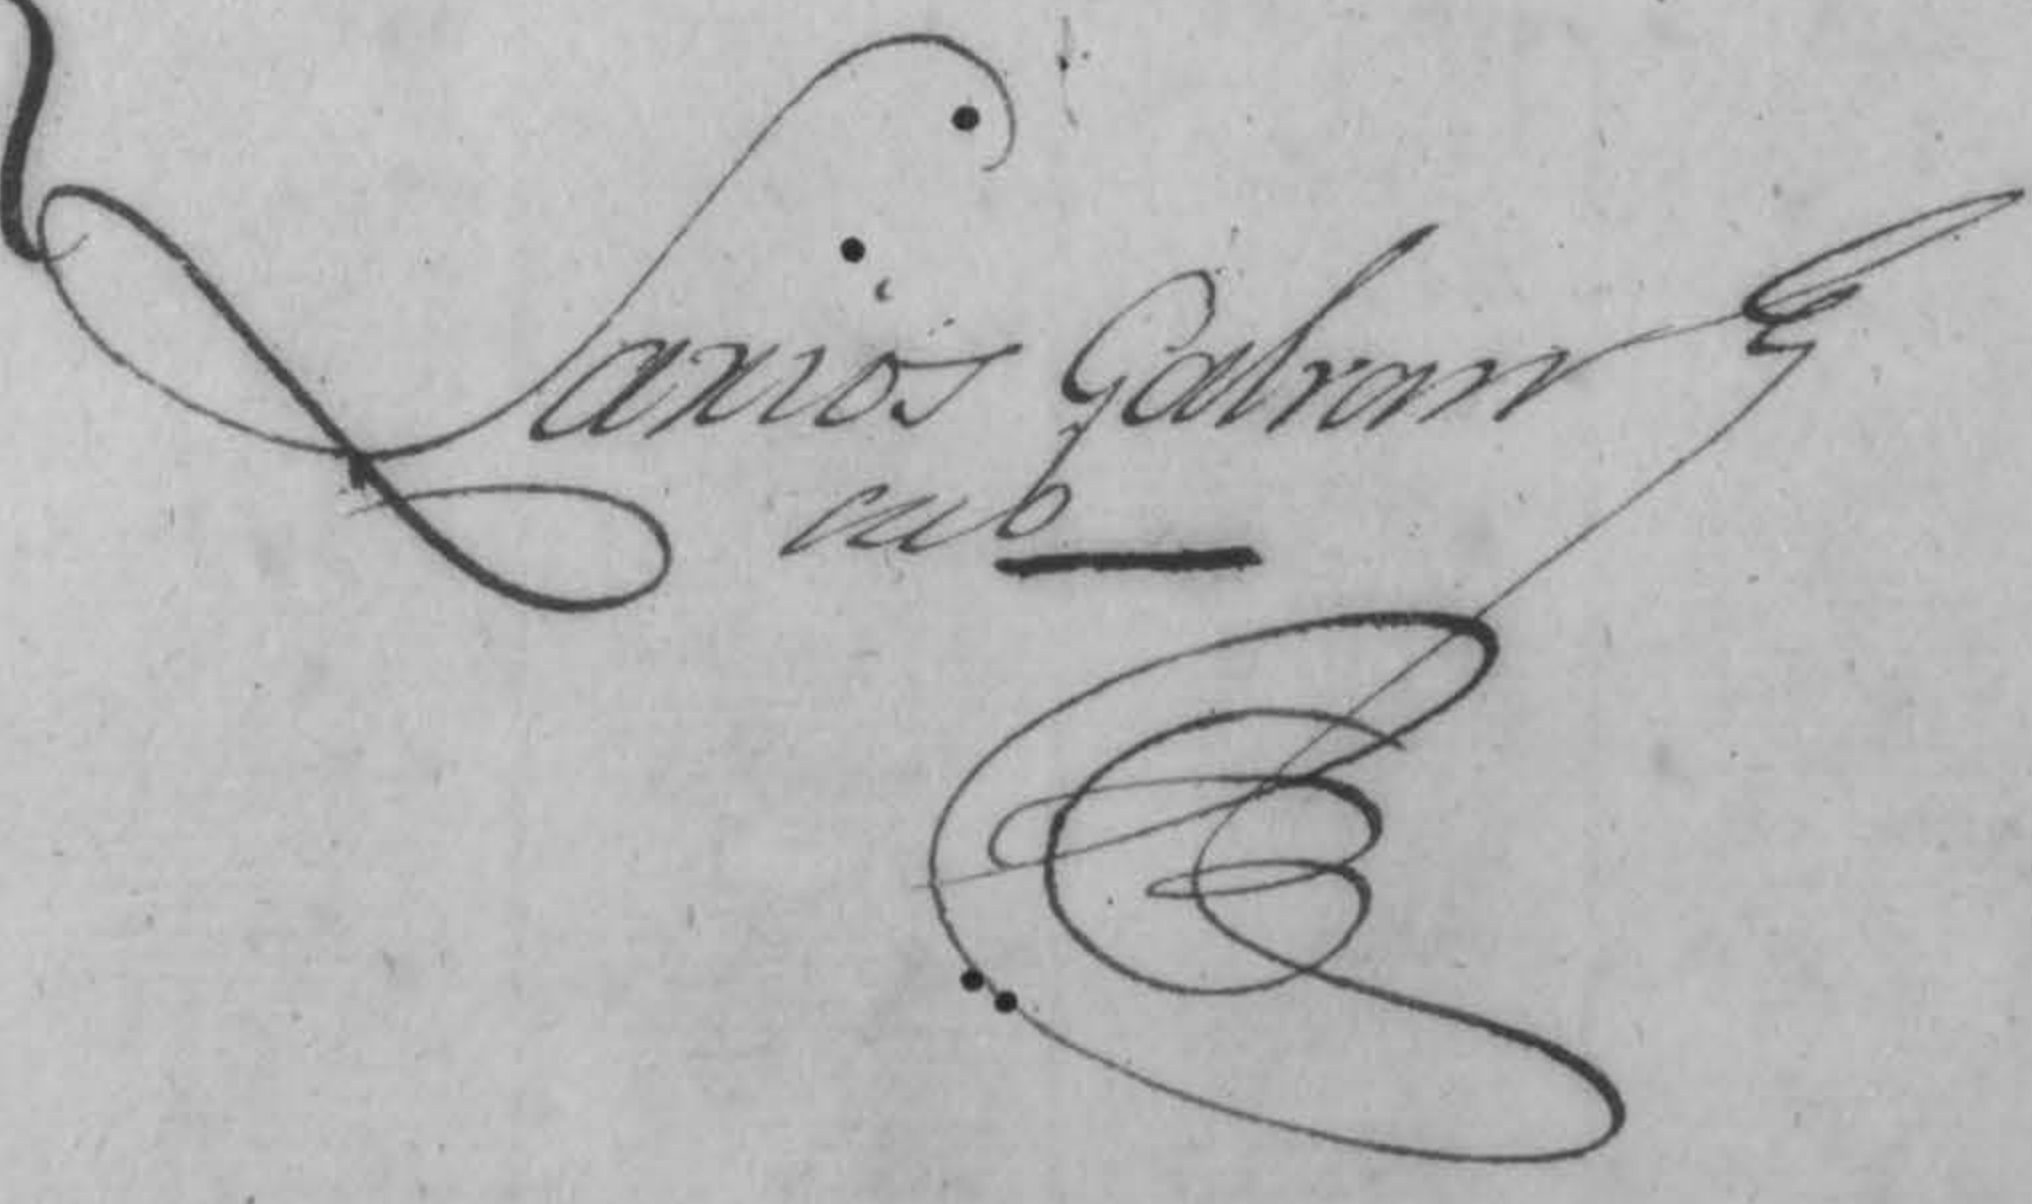 Larios Galvan